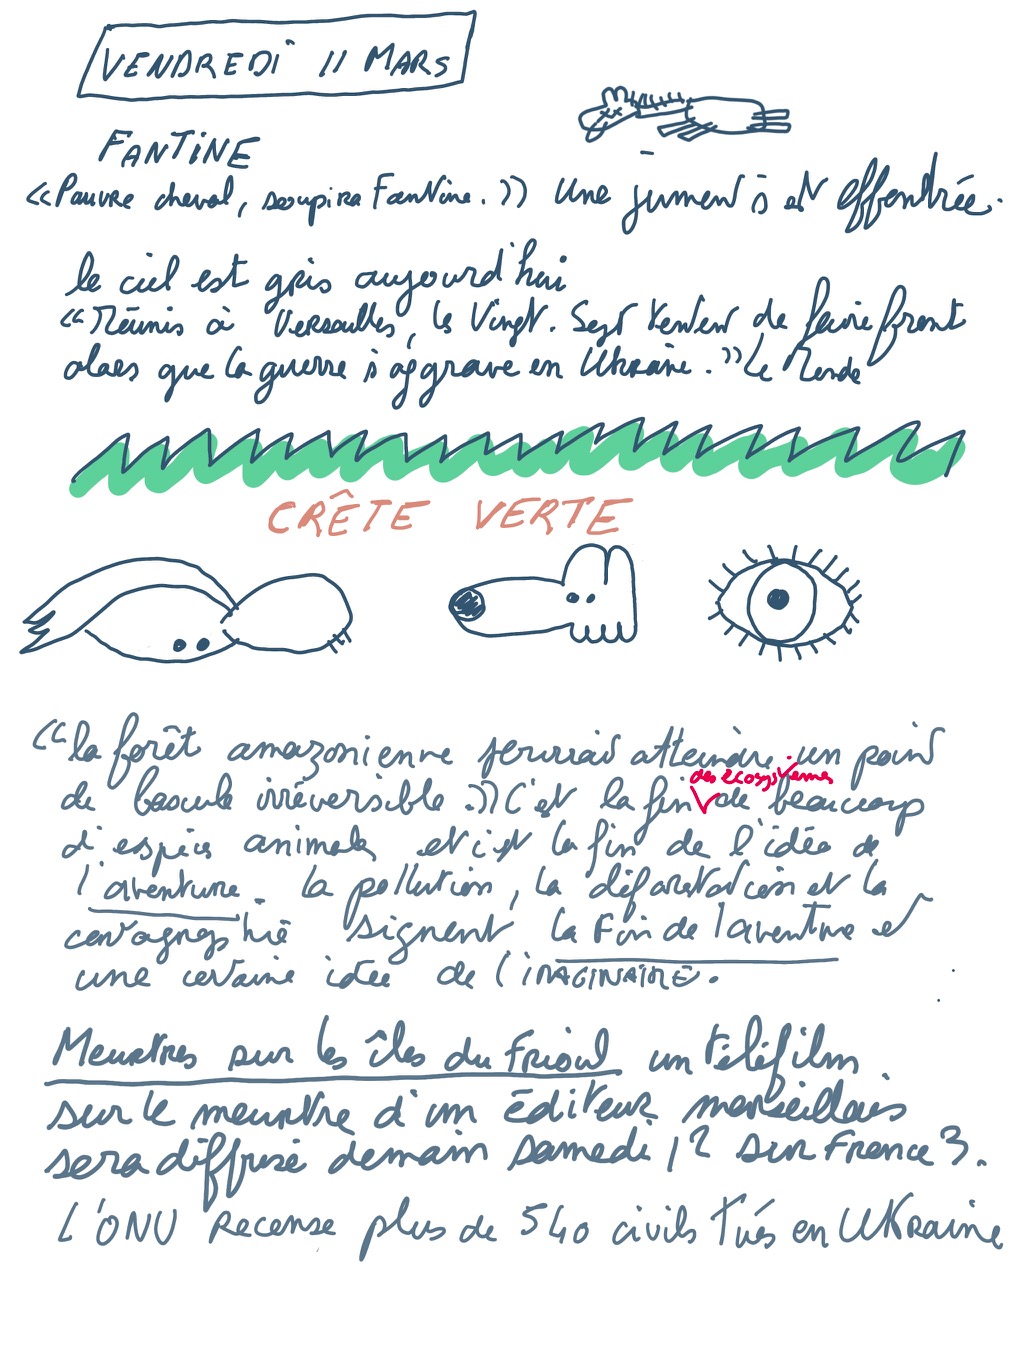 VENDREDI 11 MARS
FANTINE
«Pauvre cheval, soupira Fantine.» Une jument s'est effondrée.
le ciel est gris aujourd'hui
«Réunis à Versailles, les Vingt-Sept tentent de faire front
alors que la guerre s'aggrave en Ukraine.» Le Monde
CRÊTE VERTE
«la forêt amazonienne pourrait atteindre un point
des écosystèmes
de bascule irréversible.» C'est la fin de beaucoup
d'espèces animales et c'est la fin de l'idée de
l'aventure. La pollution, la déforestation et la
cartographie signent la Fin de l'aventure et
une certaine idée de l'IMAGINAIRE.
Meurtres sur les îles du Frioul un téléfilm
sur le meurtre d'un éditeur marseillais
sera diffusé demain samedi 12 sur France 3.
L'ONU Recense plus de 540 civils Tués en UKRaine